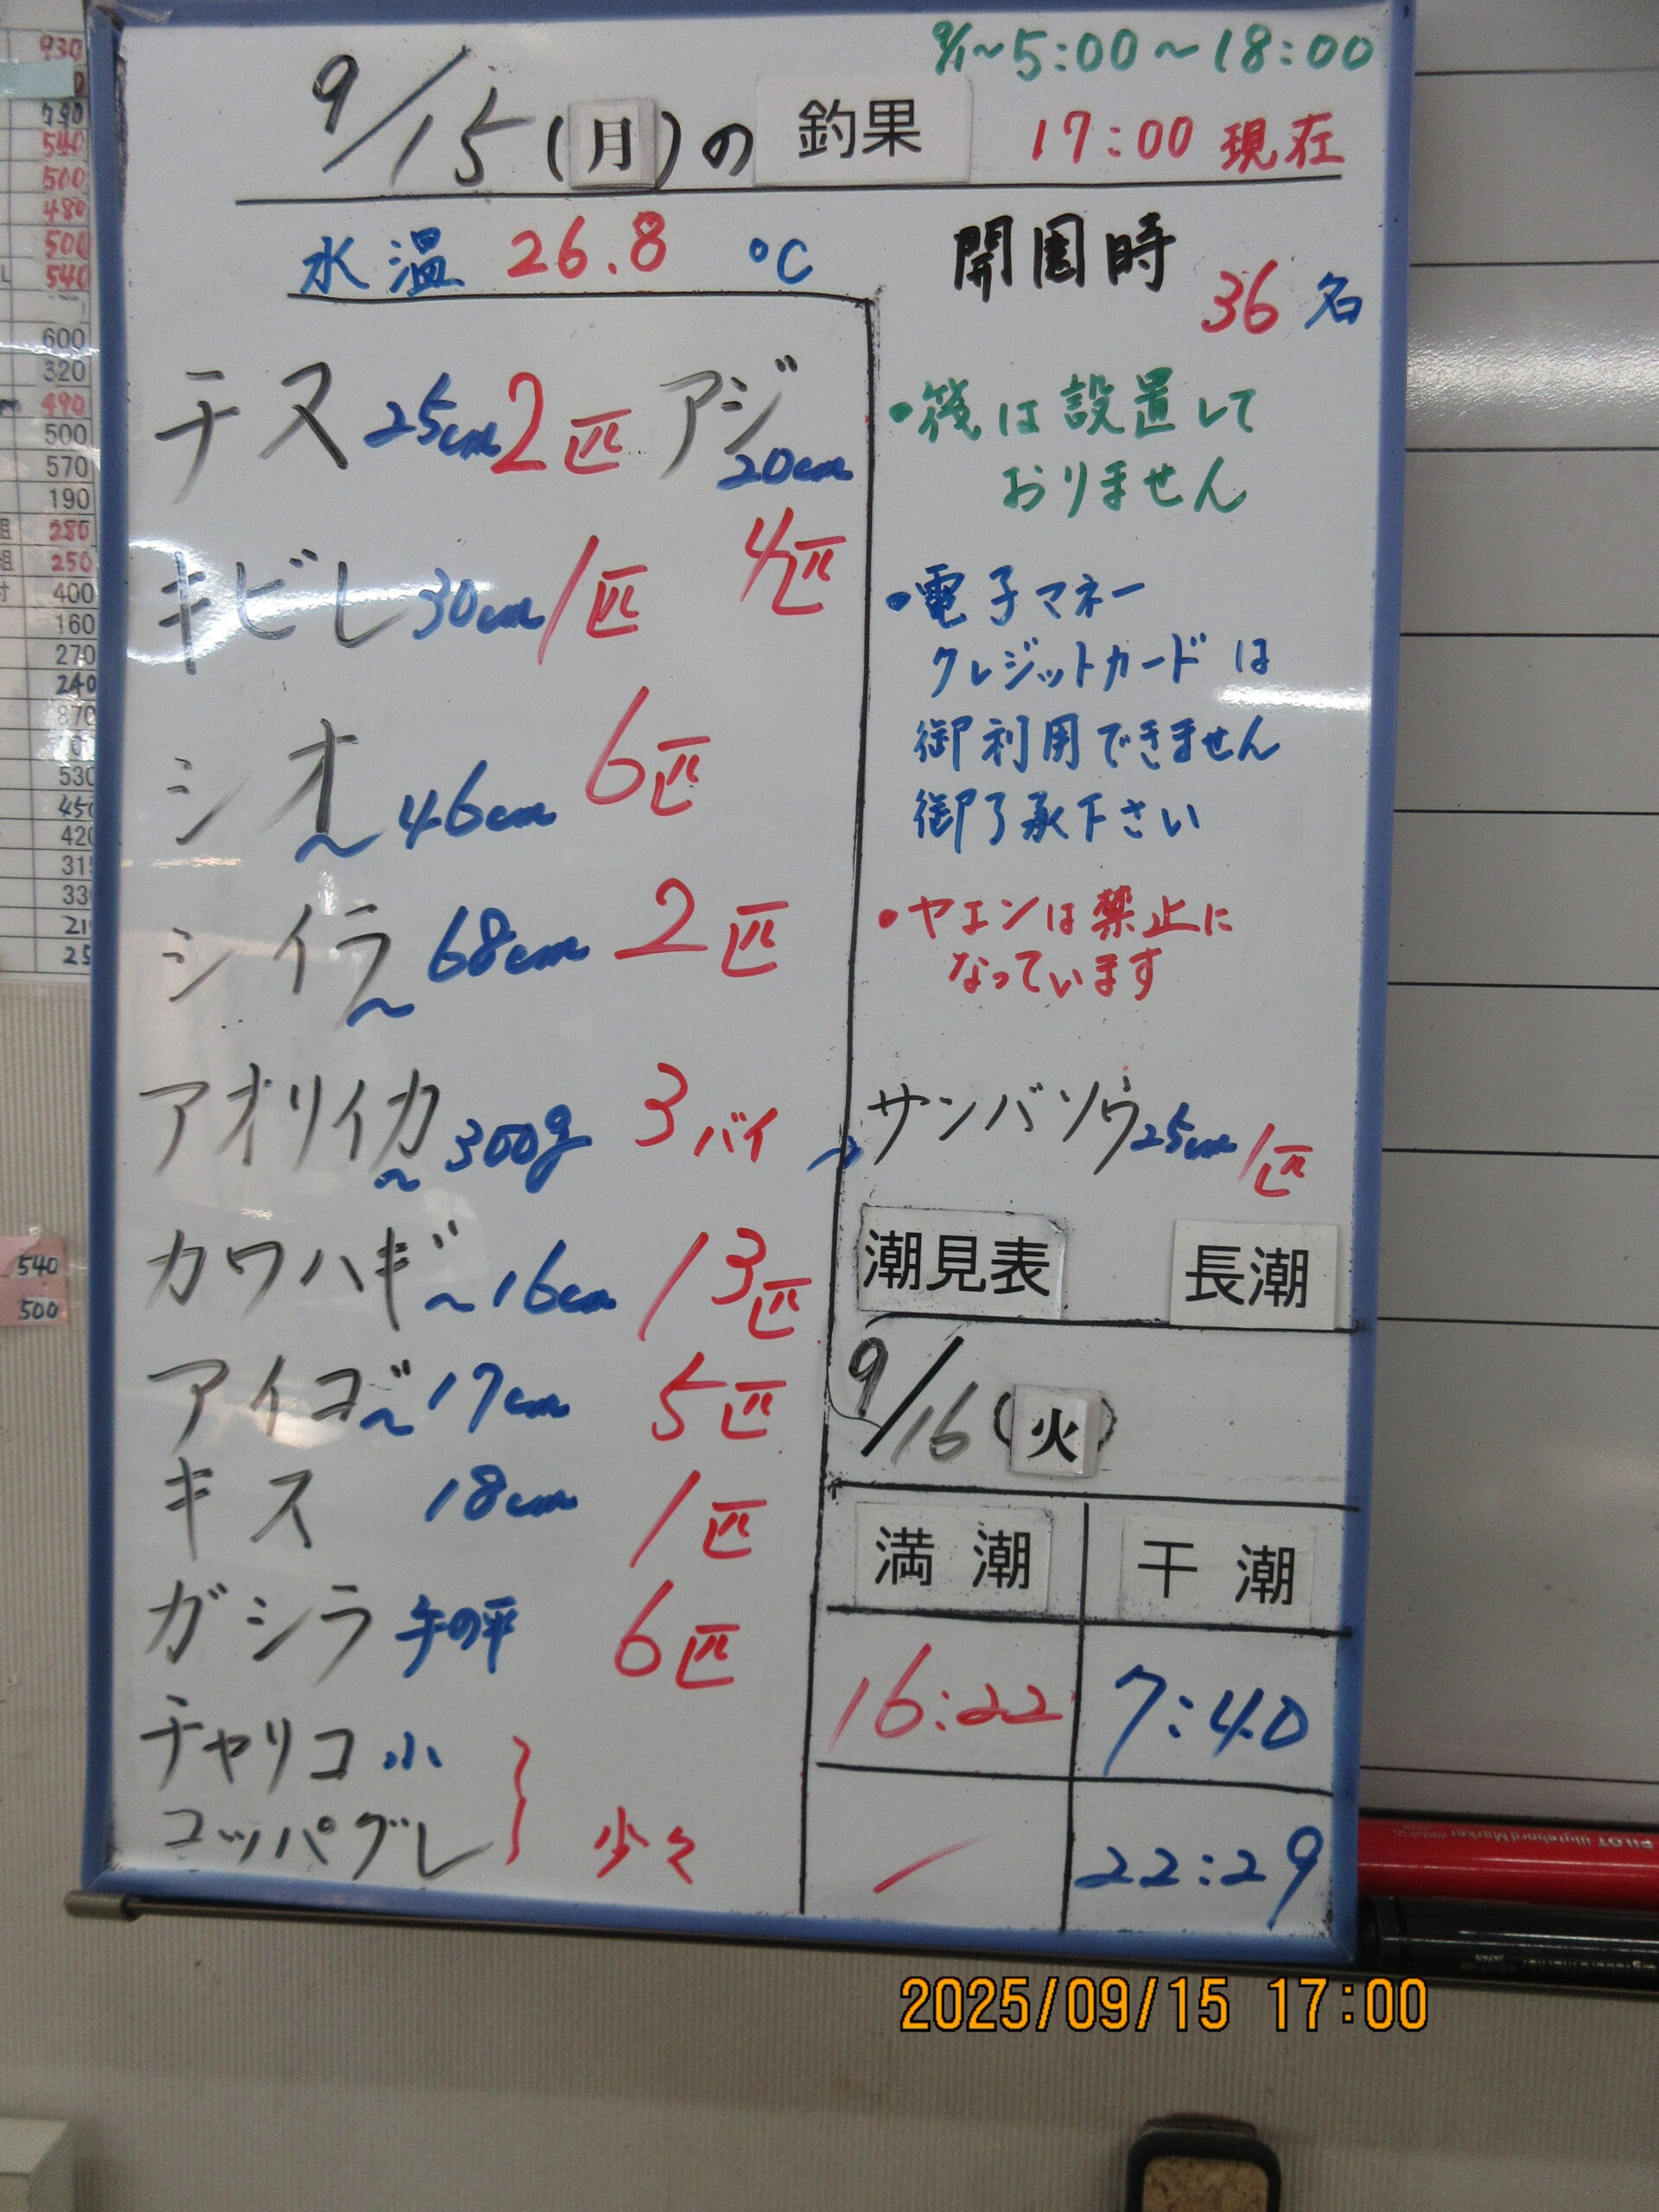 9/1~5:00~18:00
9/15(月)の 釣果 17:00 現在
水温 26.8 ℃
開園時 36名
チヌ 25cm 2匹 アジ 20cm 4匹
キビレ 30cm 1匹
シオ ~46cm 6匹
シイラ ~68cm 2匹
アオリイカ ~300g 3バイ
カワハギ ~16cm 13匹
アイゴ ~17cm 5匹
キス 18cm 1匹
ガシラ 手の平 6匹
チャリコ 小
コッパグレ } 少々
・筏は設置して
おりません
・電子マネー
クレジットカードは
御利用できません
御了承下さい
・ヤエンは禁止に
なっています
サンバソウ ~25cm 1匹
潮見表 長潮
9/16(火)
満潮 干潮
16:22 7:40
/ 22:29
2025/09/15 17:00
930
790
540
500
480
500
540
600
320
490
500
570
190
280
250
400
160
270
240
870
530
450
420
540
500
PILOT